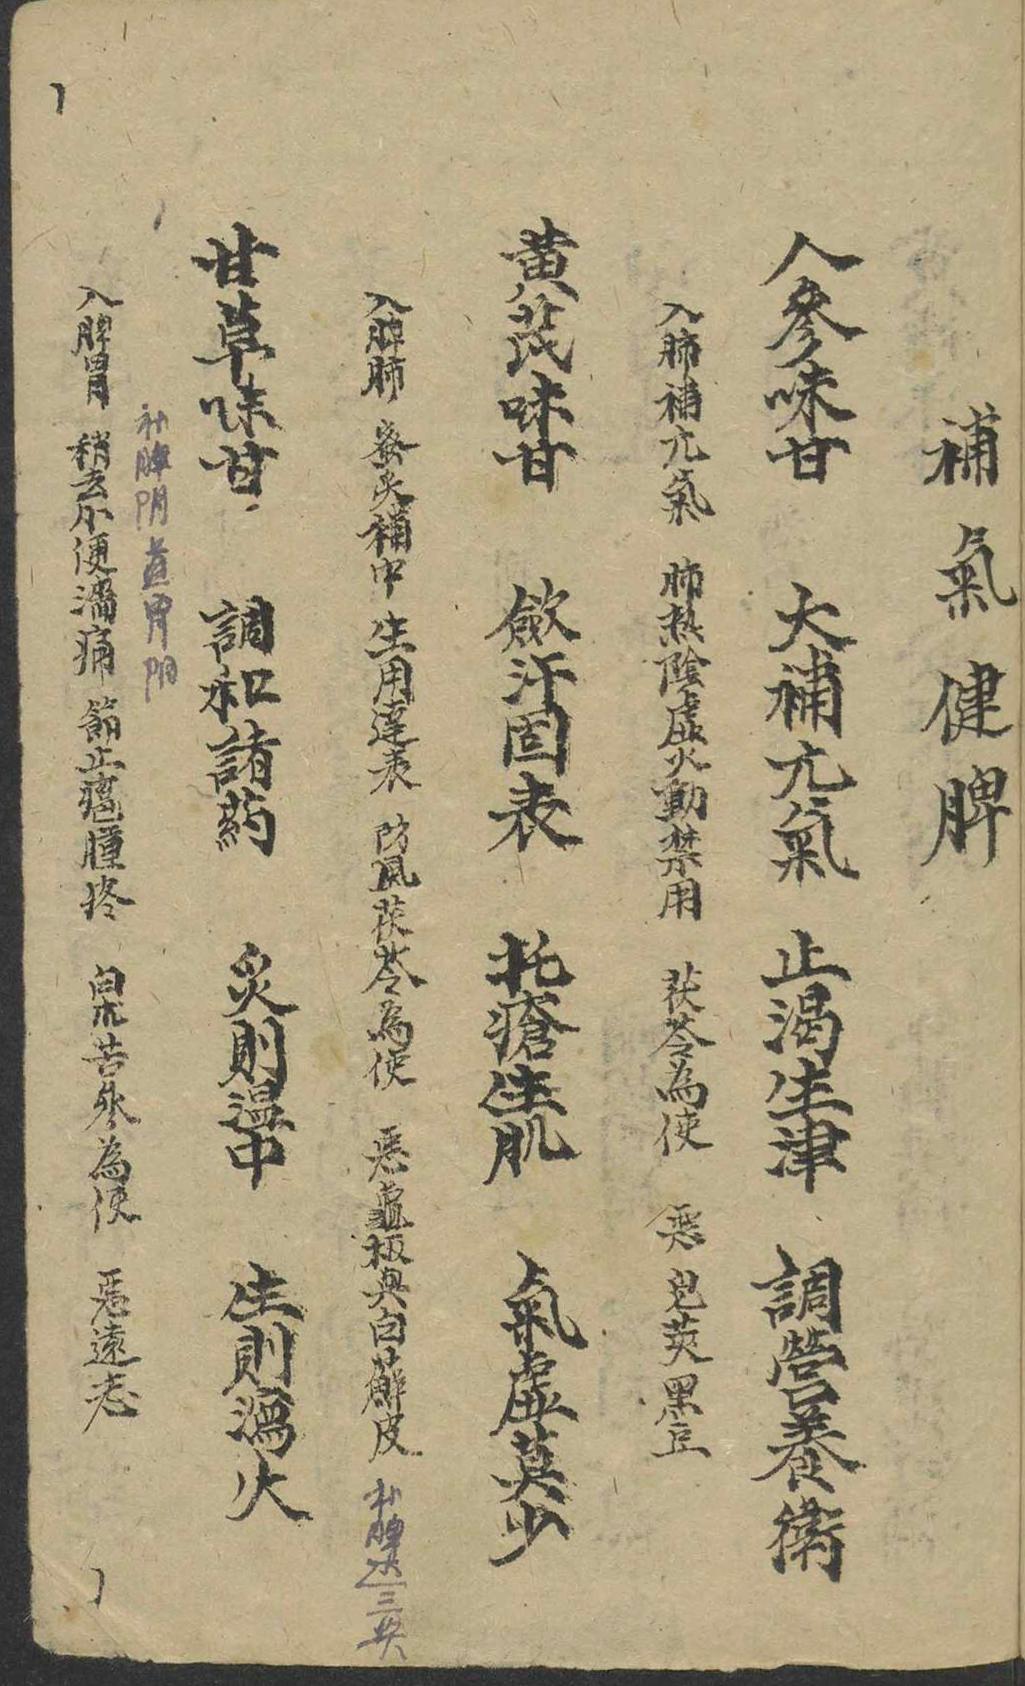 補氣健脾
人參味甘 大補元氣 止渴生津 調營養衛
入肺補元氣 肺热陰虛火動禁用 茯苓為使 惡皂莢黑豆
黄茂味甘 斂汗固表 托瘡生肌 氣虛莫少
入脾肺 蜜炙補中 生用達表 防風茯苓為使 惡龜板與白蘚皮
甘草味甘 調和諸药 炙則溫中 生則瀉火
补脾阴 胃阴
入脾胃 稍去小便濇痛 節止瘡腫疼 白朮苦參為使 惡遠志